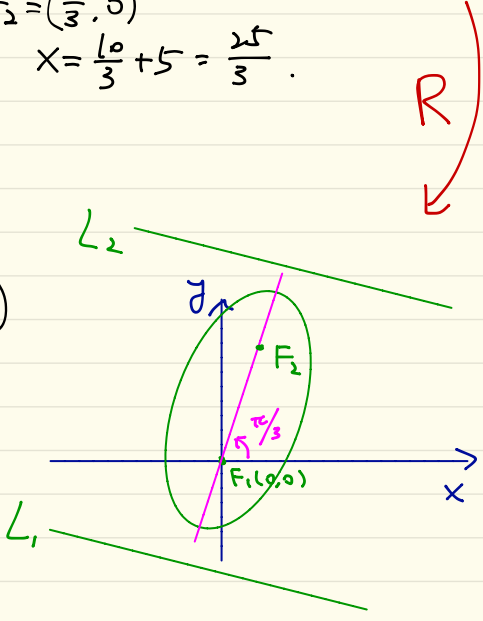 ₂ = (‾/3, 0)
x = 10/3 + 5 = 25/3 .
R
L₂
y
F₂
π/3
F₁(0,0)
x
L₁